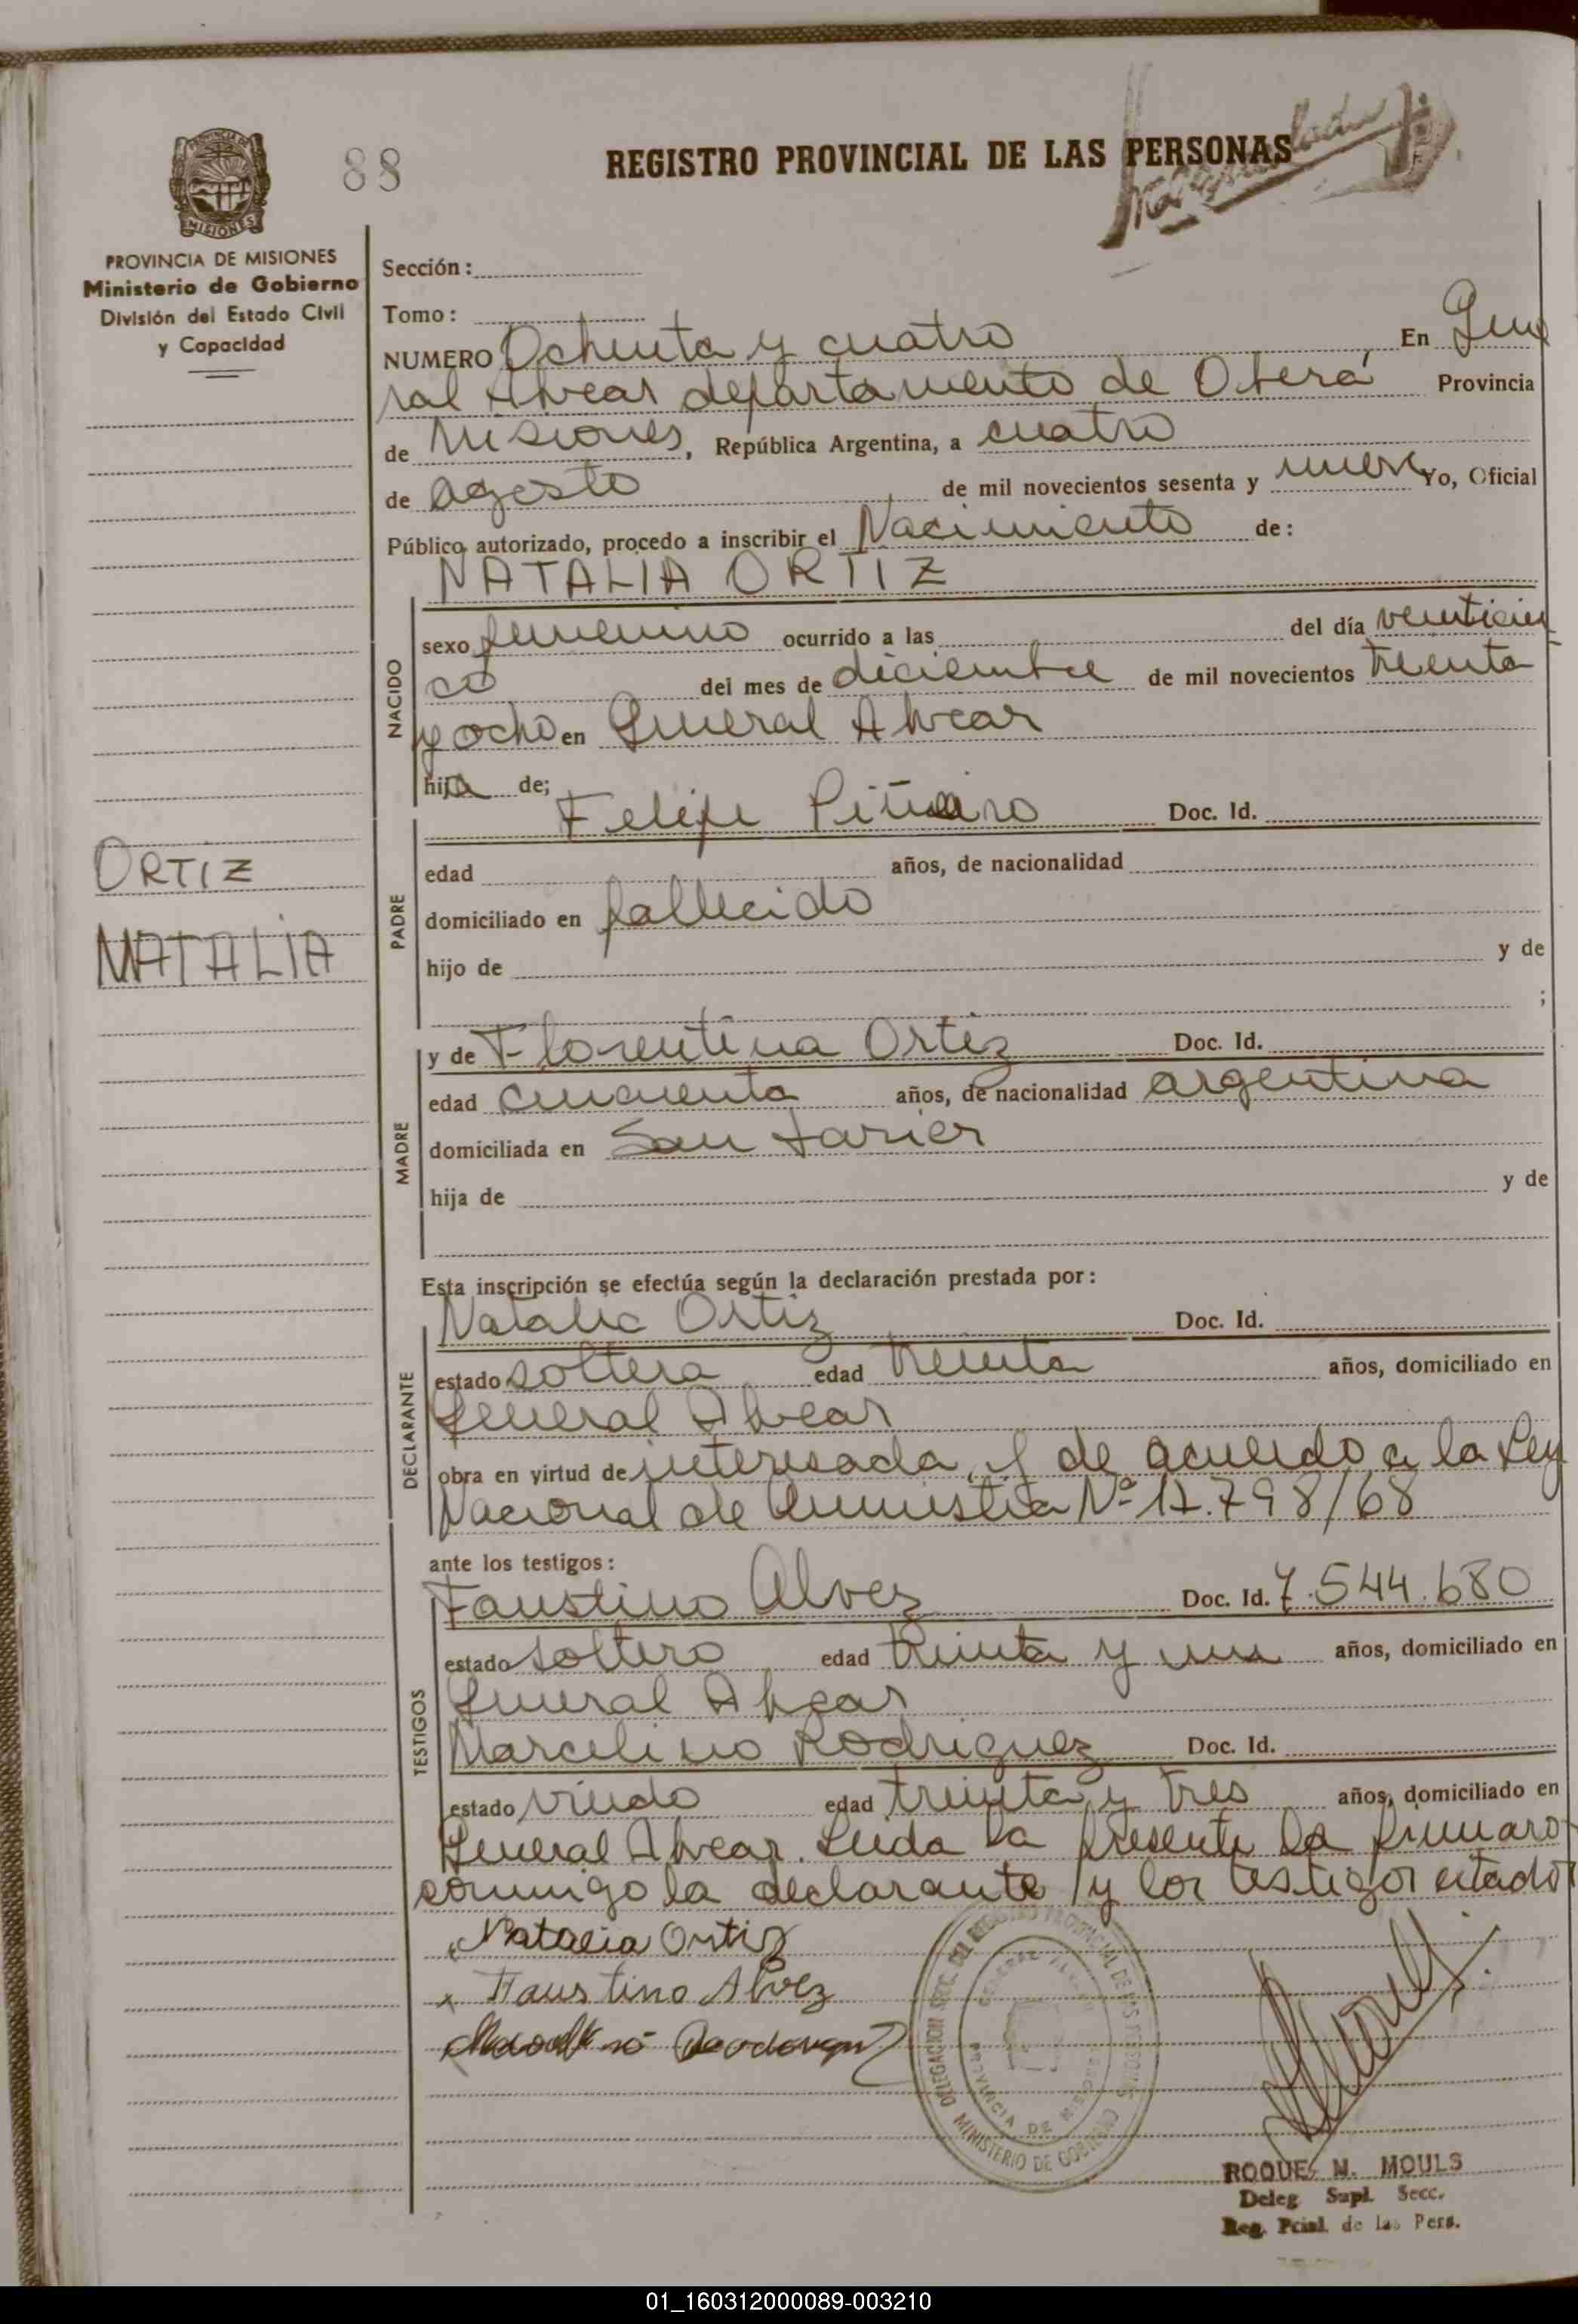 88
REGISTRO PROVINCIAL DE LAS PERSONAS
PROVINCIA DE MISIONES
Ministerio de Gobierno
División del Estado Civil
y Capacidad
Sección:
Tomo:
NUMERO Ochenta y cuatro En Gene
ral Alvear departamento de Oberá Provincia
de Misiones, República Argentina, a cuatro
de agosto de mil novecientos sesenta y nueve Yo, Oficial
Público autorizado, procedo a inscribir el Nacimiento de:
NATALIA ORTIZ
NACIDO
sexo femenino ocurrido a las del día veinticin
co del mes de diciembre de mil novecientos treinta
y ocho en General Alvear
hija de;
PADRE
Felipe Doc. Id.
edad años, de nacionalidad
domiciliado en fallecido
hijo de y de
;
ORTIZ
NATALIA
MADRE
y de Florentina Ortiz Doc. Id.
edad cincuenta años, de nacionalidad argentina
domiciliada en San Javier
hija de y de
Esta inscripción se efectúa según la declaración prestada por:
DECLARANTE
Natalia Ortiz Doc. Id.
estado soltera edad treinta años, domiciliado en
General Alvear
obra en virtud de interesada y de acuerdo a la Ley
Nacional de Amnistia Nº 17.798/68
ante los testigos:
TESTIGOS
Faustino Alvez Doc. Id. 7.544.680
estado soltero edad treinta y un años, domiciliado en
General Alvear
Marcelino Rodriguez Doc. Id.
estado viudo edad treinta y tres años, domiciliado en
General Alvear. Leida la presente la firmaron
conmigo la declarante y los testigos citados
Natalia Ortiz
Faustino Alvez
DELEGACION SECC. DEL REGISTRO PROVINCIAL DE LAS PERSONAS
GENERAL ALVEAR
PROVINCIA DE MISIONES
MINISTERIO DE GOBIERNO
ROQUE N. MOULS
Deleg. Supl. Secc.
Reg. Pcial. de las Pers.
01_160312000089-003210